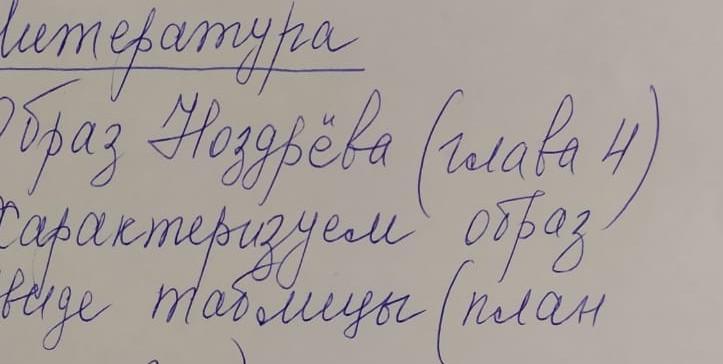 Литература
Образ Ноздрёва (глава 4)
Характеризуем образ
виде таблицы (план